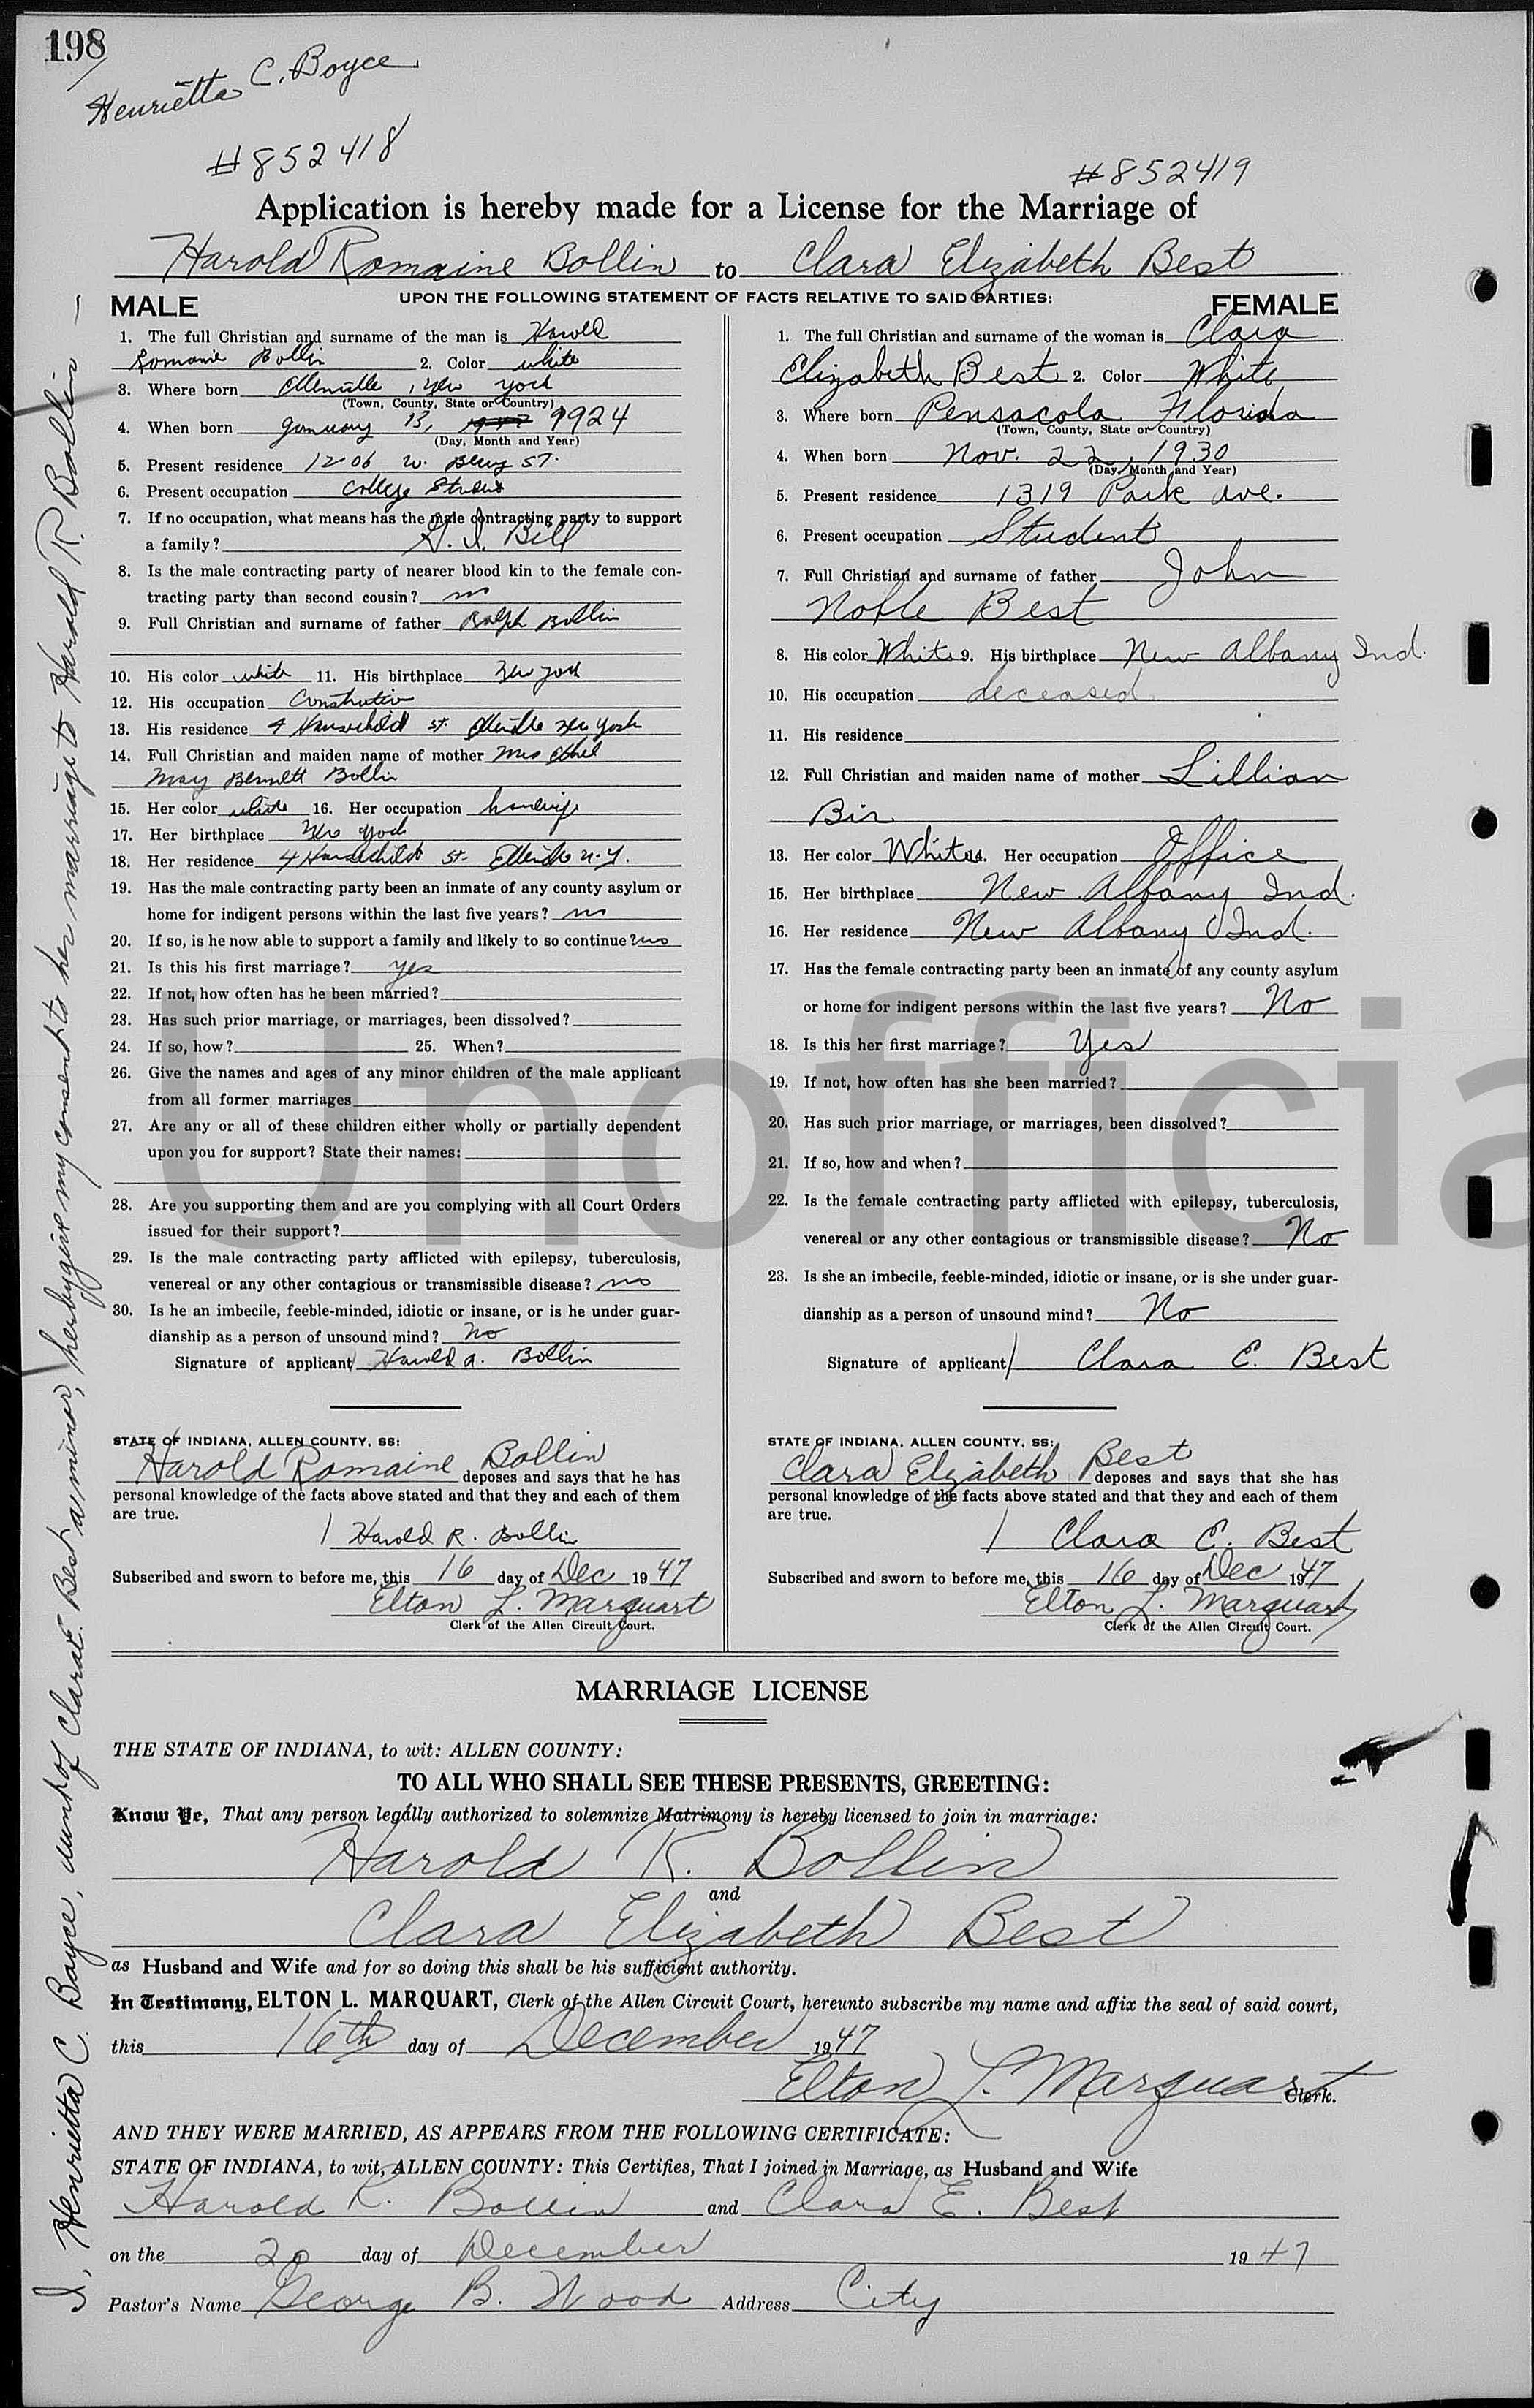 198
Henrietta C. Boyce
#852418
#852419
Application is hereby made for a License for the Marriage of
Harold Romaine Bollin to Clara Elizabeth Best
UPON THE FOLLOWING STATEMENT OF FACTS RELATIVE TO SAID PARTIES:
MALE
1. The full Christian and surname of the man is Harold
Romaine Bollin 2. Color white
3. Where born Ellenville, New York
(Town, County, State or Country)
4. When born January 13, 1947 1924
(Day, Month and Year)
5. Present residence 1206 W. Berry St.
6. Present occupation College Student
7. If no occupation, what means has the male contracting party to support
a family? G. I. Bill
8. Is the male contracting party of nearer blood kin to the female con-
tracting party than second cousin? no
9. Full Christian and surname of father Ralph Bollin
10. His color white 11. His birthplace New York
12. His occupation Construction
13. His residence 4 St. Ellenville New York
14. Full Christian and maiden name of mother Mrs Ethel
May Bennett Bollin
15. Her color white 16. Her occupation housewife
17. Her birthplace New York
18. Her residence 4 St. Ellenville N.Y.
19. Has the male contracting party been an inmate of any county asylum or
home for indigent persons within the last five years? no
20. If so, is he now able to support a family and likely to so continue? no
21. Is this his first marriage? yes
22. If not, how often has he been married?
23. Has such prior marriage, or marriages, been dissolved?
24. If so, how? 25. When?
26. Give the names and ages of any minor children of the male applicant
from all former marriages
27. Are any or all of these children either wholly or partially dependent
upon you for support? State their names:
28. Are you supporting them and are you complying with all Court Orders
issued for their support?
29. Is the male contracting party afflicted with epilepsy, tuberculosis,
venereal or any other contagious or transmissible disease? no
30. Is he an imbecile, feeble-minded, idiotic or insane, or is he under guar-
dianship as a person of unsound mind? No
Signature of applicant Harold R. Bollin
STATE OF INDIANA, ALLEN COUNTY, SS:
Harold Romaine Bollin deposes and says that he has
personal knowledge of the facts above stated and that they and each of them
are true.
Harold R. Bollin
Subscribed and sworn to before me, this 16 day of Dec 1947
Elton L. Marquart
Clerk of the Allen Circuit Court.
FEMALE
1. The full Christian and surname of the woman is Clara
Elizabeth Best 2. Color White
3. Where born Pensacola Florida
(Town, County, State or Country)
4. When born Nov. 22, 1930
(Day, Month and Year)
5. Present residence 1319 Park Ave.
6. Present occupation Student
7. Full Christian and surname of father John
Noble Best
8. His color White 9. His birthplace New Albany Ind.
10. His occupation deceased
11. His residence
12. Full Christian and maiden name of mother Lillian
Bir
13. Her color White 14. Her occupation Office
15. Her birthplace New Albany Ind.
16. Her residence New Albany Ind.
17. Has the female contracting party been an inmate of any county asylum
or home for indigent persons within the last five years? No
18. Is this her first marriage? Yes
19. If not, how often has she been married?
20. Has such prior marriage, or marriages, been dissolved?
21. If so, how and when?
22. Is the female contracting party afflicted with epilepsy, tuberculosis,
venereal or any other contagious or transmissible disease? No
23. Is she an imbecile, feeble-minded, idiotic or insane, or is she under guar-
dianship as a person of unsound mind? No
Signature of applicant Clara E. Best
STATE OF INDIANA, ALLEN COUNTY, SS:
Clara Elizabeth Best deposes and says that she has
personal knowledge of the facts above stated and that they and each of them
are true.
Clara E. Best
Subscribed and sworn to before me, this 16 day of Dec 1947
Elton L. Marquart
Clerk of the Allen Circuit Court.
MARRIAGE LICENSE
THE STATE OF INDIANA, to wit: ALLEN COUNTY:
TO ALL WHO SHALL SEE THESE PRESENTS, GREETING:
Know Ye, That any person legally authorized to solemnize Matrimony is hereby licensed to join in marriage:
Harold R. Bollin
and
Clara Elizabeth Best
as Husband and Wife and for so doing this shall be his sufficient authority.
In Testimony, ELTON L. MARQUART, Clerk of the Allen Circuit Court, hereunto subscribe my name and affix the seal of said court,
this 16th day of December 1947
Elton L. Marquart Clerk.
AND THEY WERE MARRIED, AS APPEARS FROM THE FOLLOWING CERTIFICATE:
STATE OF INDIANA, to wit, ALLEN COUNTY: This Certifies, That I joined in Marriage, as Husband and Wife
Harold R. Bollin and Clara E. Best
on the 20 day of December 1947
Pastor's Name George B. Wood Address City
I, Henrietta C. Boyce, aunt of Clara E. Best a minor, herby give my consent to her marriage to Harold R. Bollin —
Unofficia